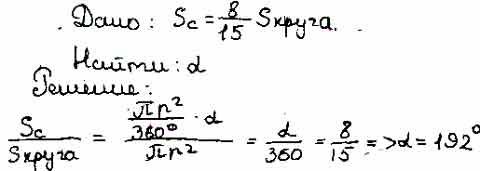 Дано: Sc = 8/15 Sкруга.
Найти: α
Решение:
Sc/Sкруга = (πr²/360° · α)/(πr²) = α/360 = 8/15 => α = 192°